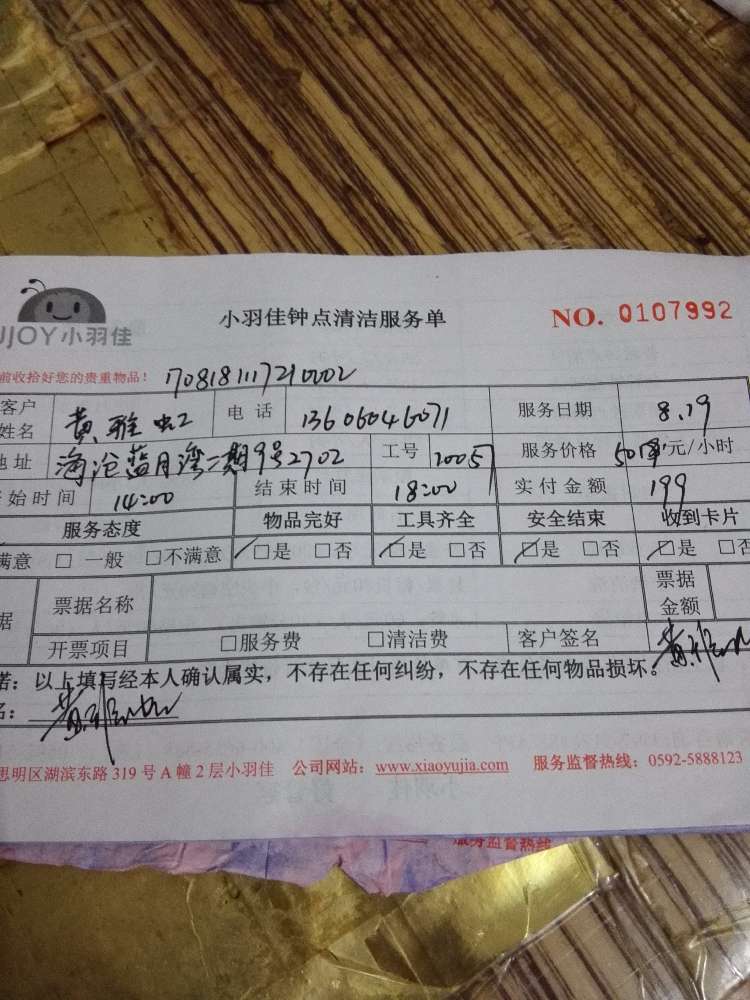 UJOY小羽佳
小羽佳钟点清洁服务单
NO. 0107992
前收拾好您的贵重物品!
1708181117210002
客户姓名 黄雅虹 电话 13606046071 服务日期 8.19
地址 海沧蓝月湾二期9号2702 工号 20057 服务价格 50 元/小时
开始时间 14:00 结束时间 18:00 实付金额 199
服务态度 物品完好 工具齐全 安全结束 收到卡片
满意 □ 一般 □不满意 □是 □否 □是 □否 □是 □否 □是 □否
据 票据名称 票据金额
开票项目 □服务费 □清洁费 客户签名
诺:以上填写经本人确认属实,不存在任何纠纷,不存在任何物品损坏。
名:
思明区湖滨东路 319 号 A 幢 2 层小羽佳 公司网站:www.xiaoyujia.com 服务监督热线:0592-5888123
服务监督热线